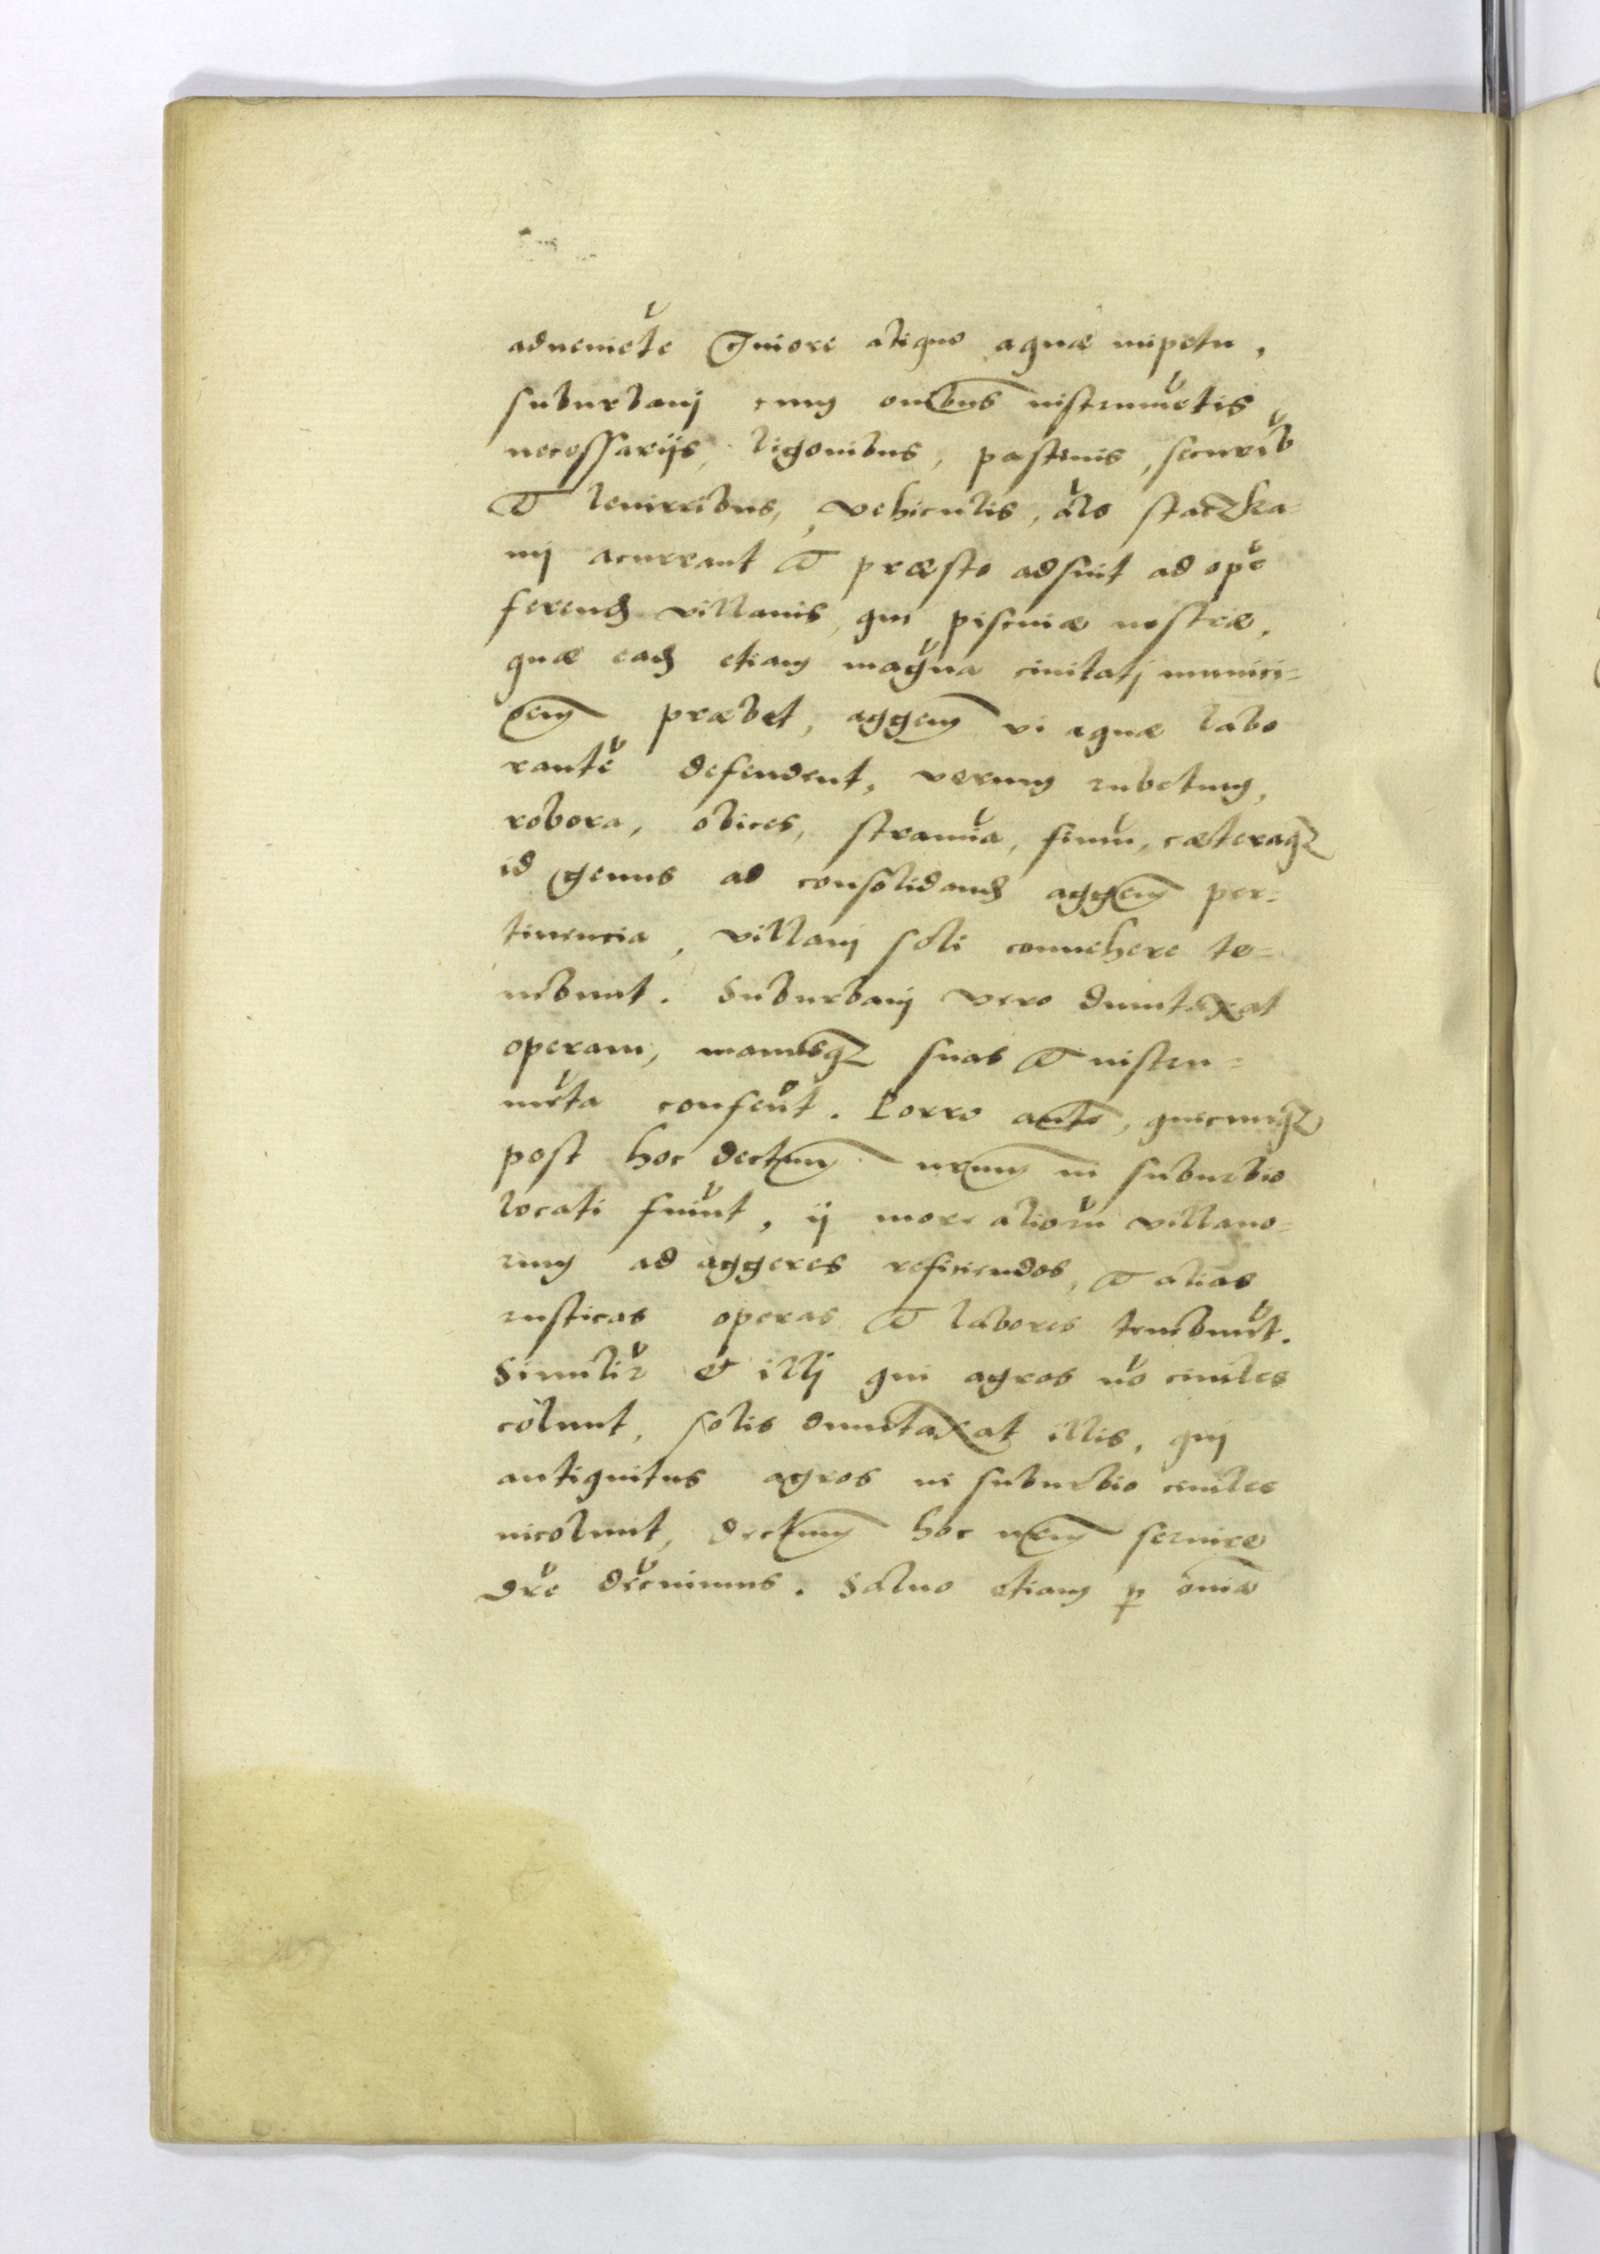 adueniēte Gniore aliquo aquæ impetu,
suburbanj cum omībus instrumētis
necessarijs, ligonibus, pastinis, securib
et leuirribus, vehiculis, ało staczka=
mj acurrant et præsto adsint ad opē
ferendā villanis, qui piscinæ nostræ,
quæ eadē etiam magna ciuitatj munici=
oem præbet, aggerem vi aquæ labo
rantē defendent, verum rubetum,
robora, obices, stramīa, fimū, cæteraqz
id genus ad consolidandū aggerem per=
tinencia, villanj soli conuehere te=
nebunt. Suburbanj vero duntaxat
operam, manusqz suas et instru=
mēta conferūt. Porro autē, quicunqz
post hoc decretum nrum in suburbio
locati fuīnt, ij more aliorū villano=
rum ad aggeres reficiendos, et alias
rusticas operas et labores tenebunt.
Similir et illj qui agros nō ciuiles
colunt, solis duntaxat illis, qui
antiquitus agros in suburbio ciuiles
incolunt, decretum hoc nrum seruire
dre decrnimus. Saluo etiam p omīa